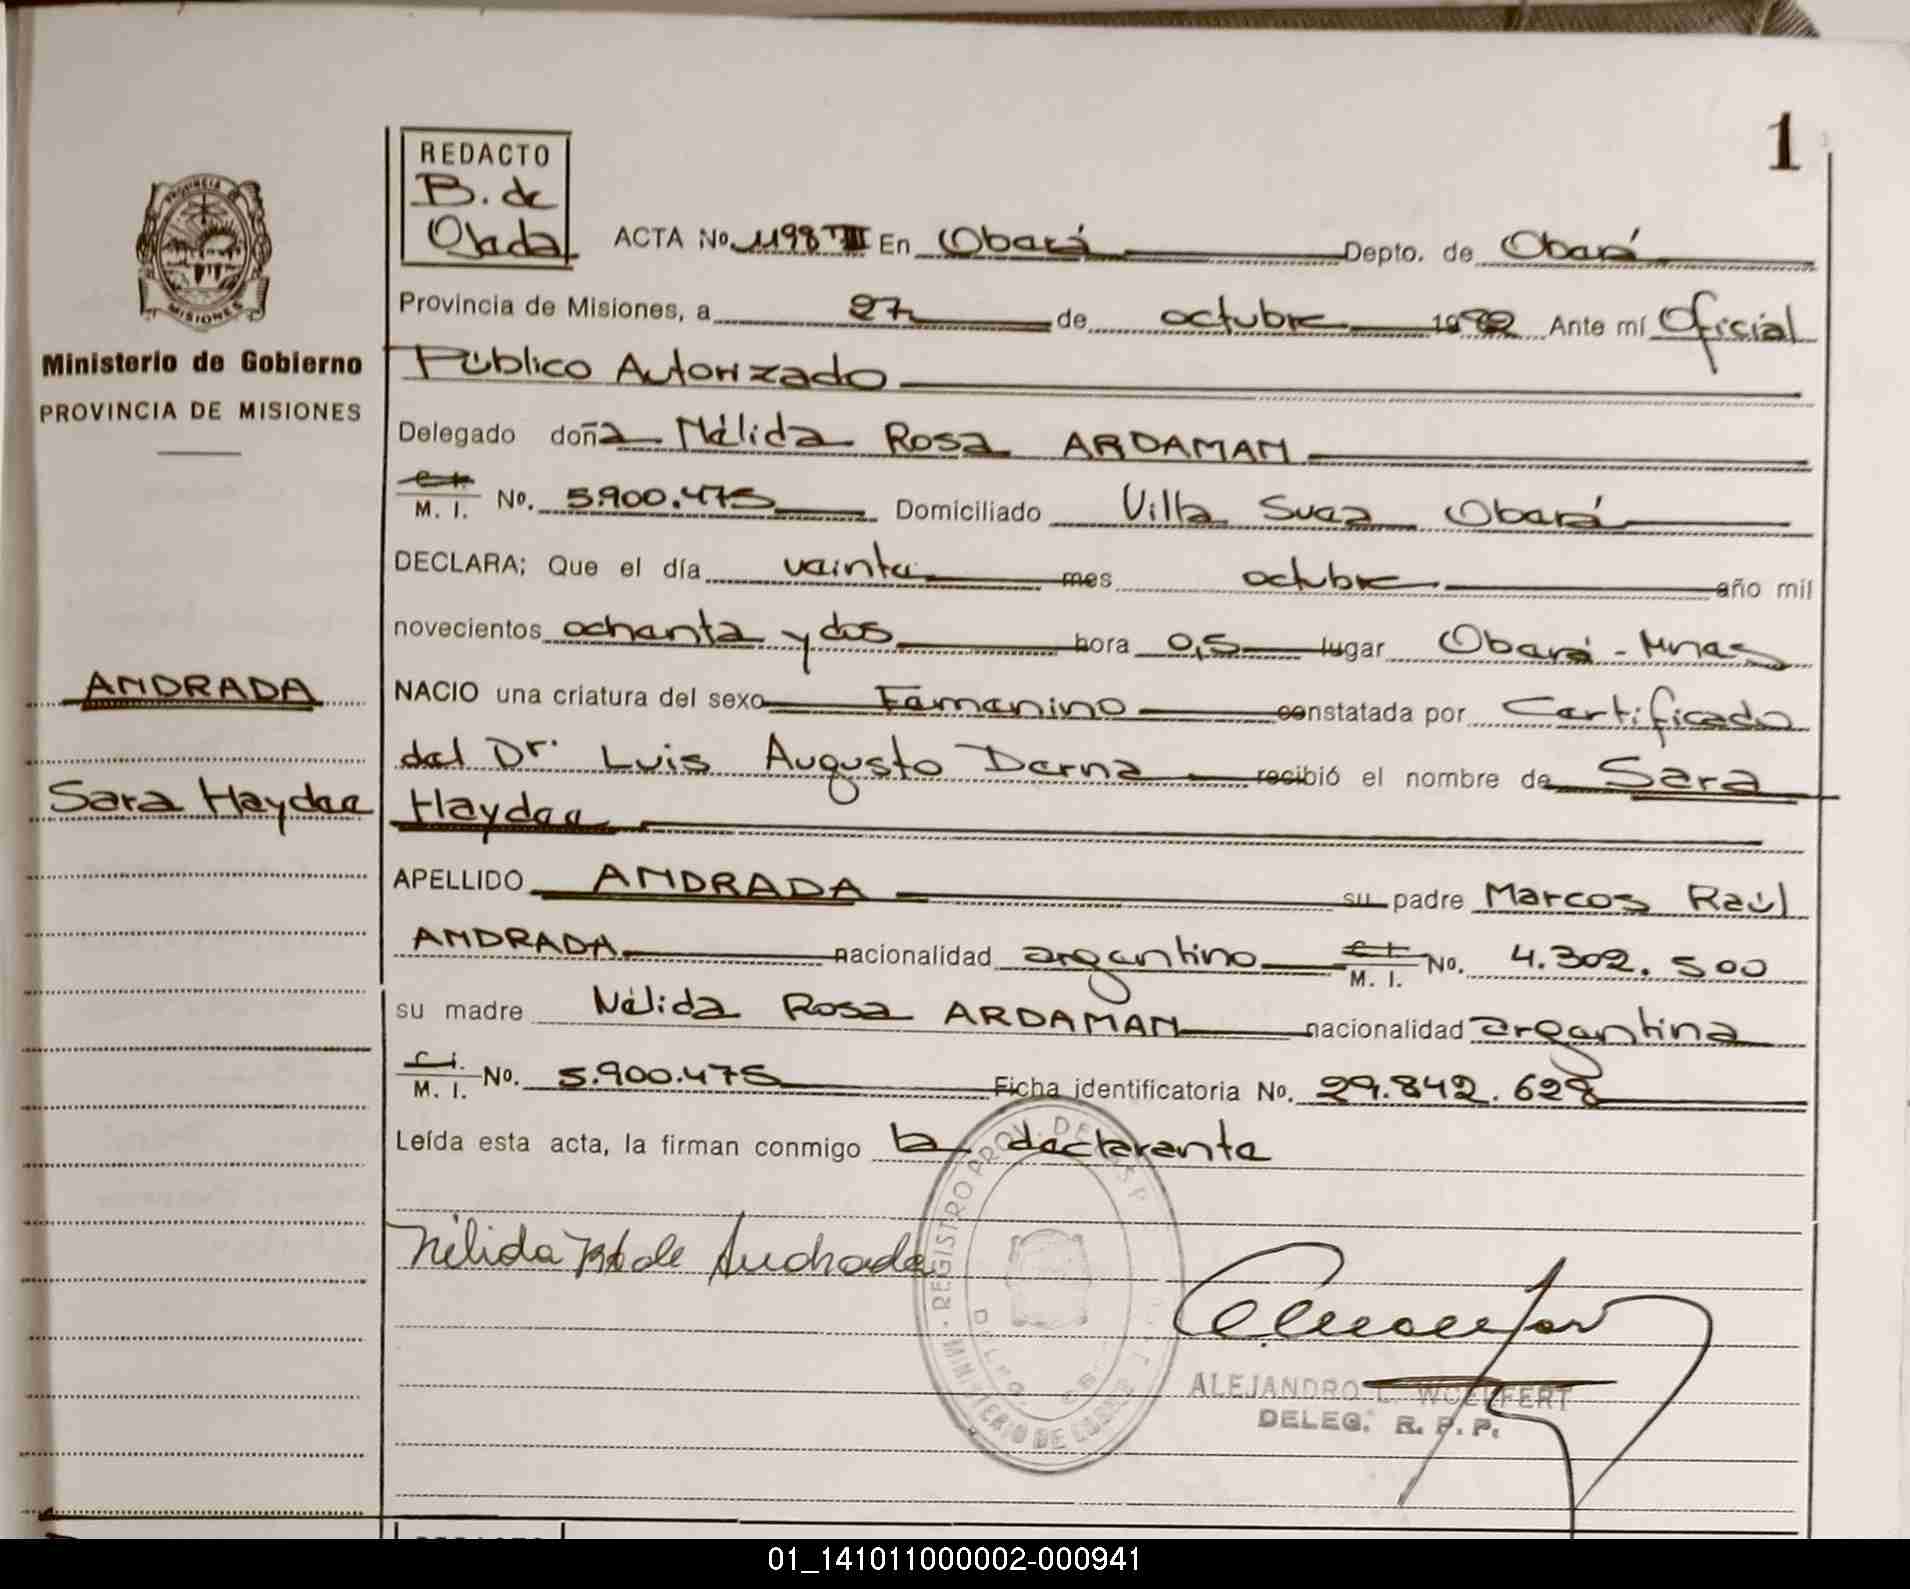 1
REDACTO
B. de
Ojeda
ACTA No. 1198 TIII En Oberá Depto. de Oberá
Provincia de Misiones, a 27 de octubre 1982 Ante mí Oficial
Público Autorizado
Delegado doña Nélida Rosa ARDAMAN
C. I. M. I. No. 5.900.475 Domiciliado Villa Oberá
DECLARA; Que el día veinte mes octubre año mil
novecientos ochenta y dos hora 0,5 lugar Oberá - Mnes
NACIO una criatura del sexo Femenino constatada por Certificado
del Dr. Luis Augusto Derna recibió el nombre de Sara
Haydee
APELLIDO ANDRADA su padre Marcos Raúl
ANDRADA nacionalidad argentino C. I. M. I. No. 4.302.500
su madre Nélida Rosa ARDAMAN nacionalidad argentina
C. I. M. I. No. 5.900.475 Ficha identificatoria No. 29.842.628
Leída esta acta, la firman conmigo la declarante
Nélida de Andrada
ALEJANDRO L. WOELFERT
DELEG. R. P. P.
REGISTRO PROV. DE
MINISTERIO DE
PROVINCIA
MISIONES
Ministerio de Gobierno
PROVINCIA DE MISIONES
ANDRADA
Sara Haydee
01_141011000002-000941